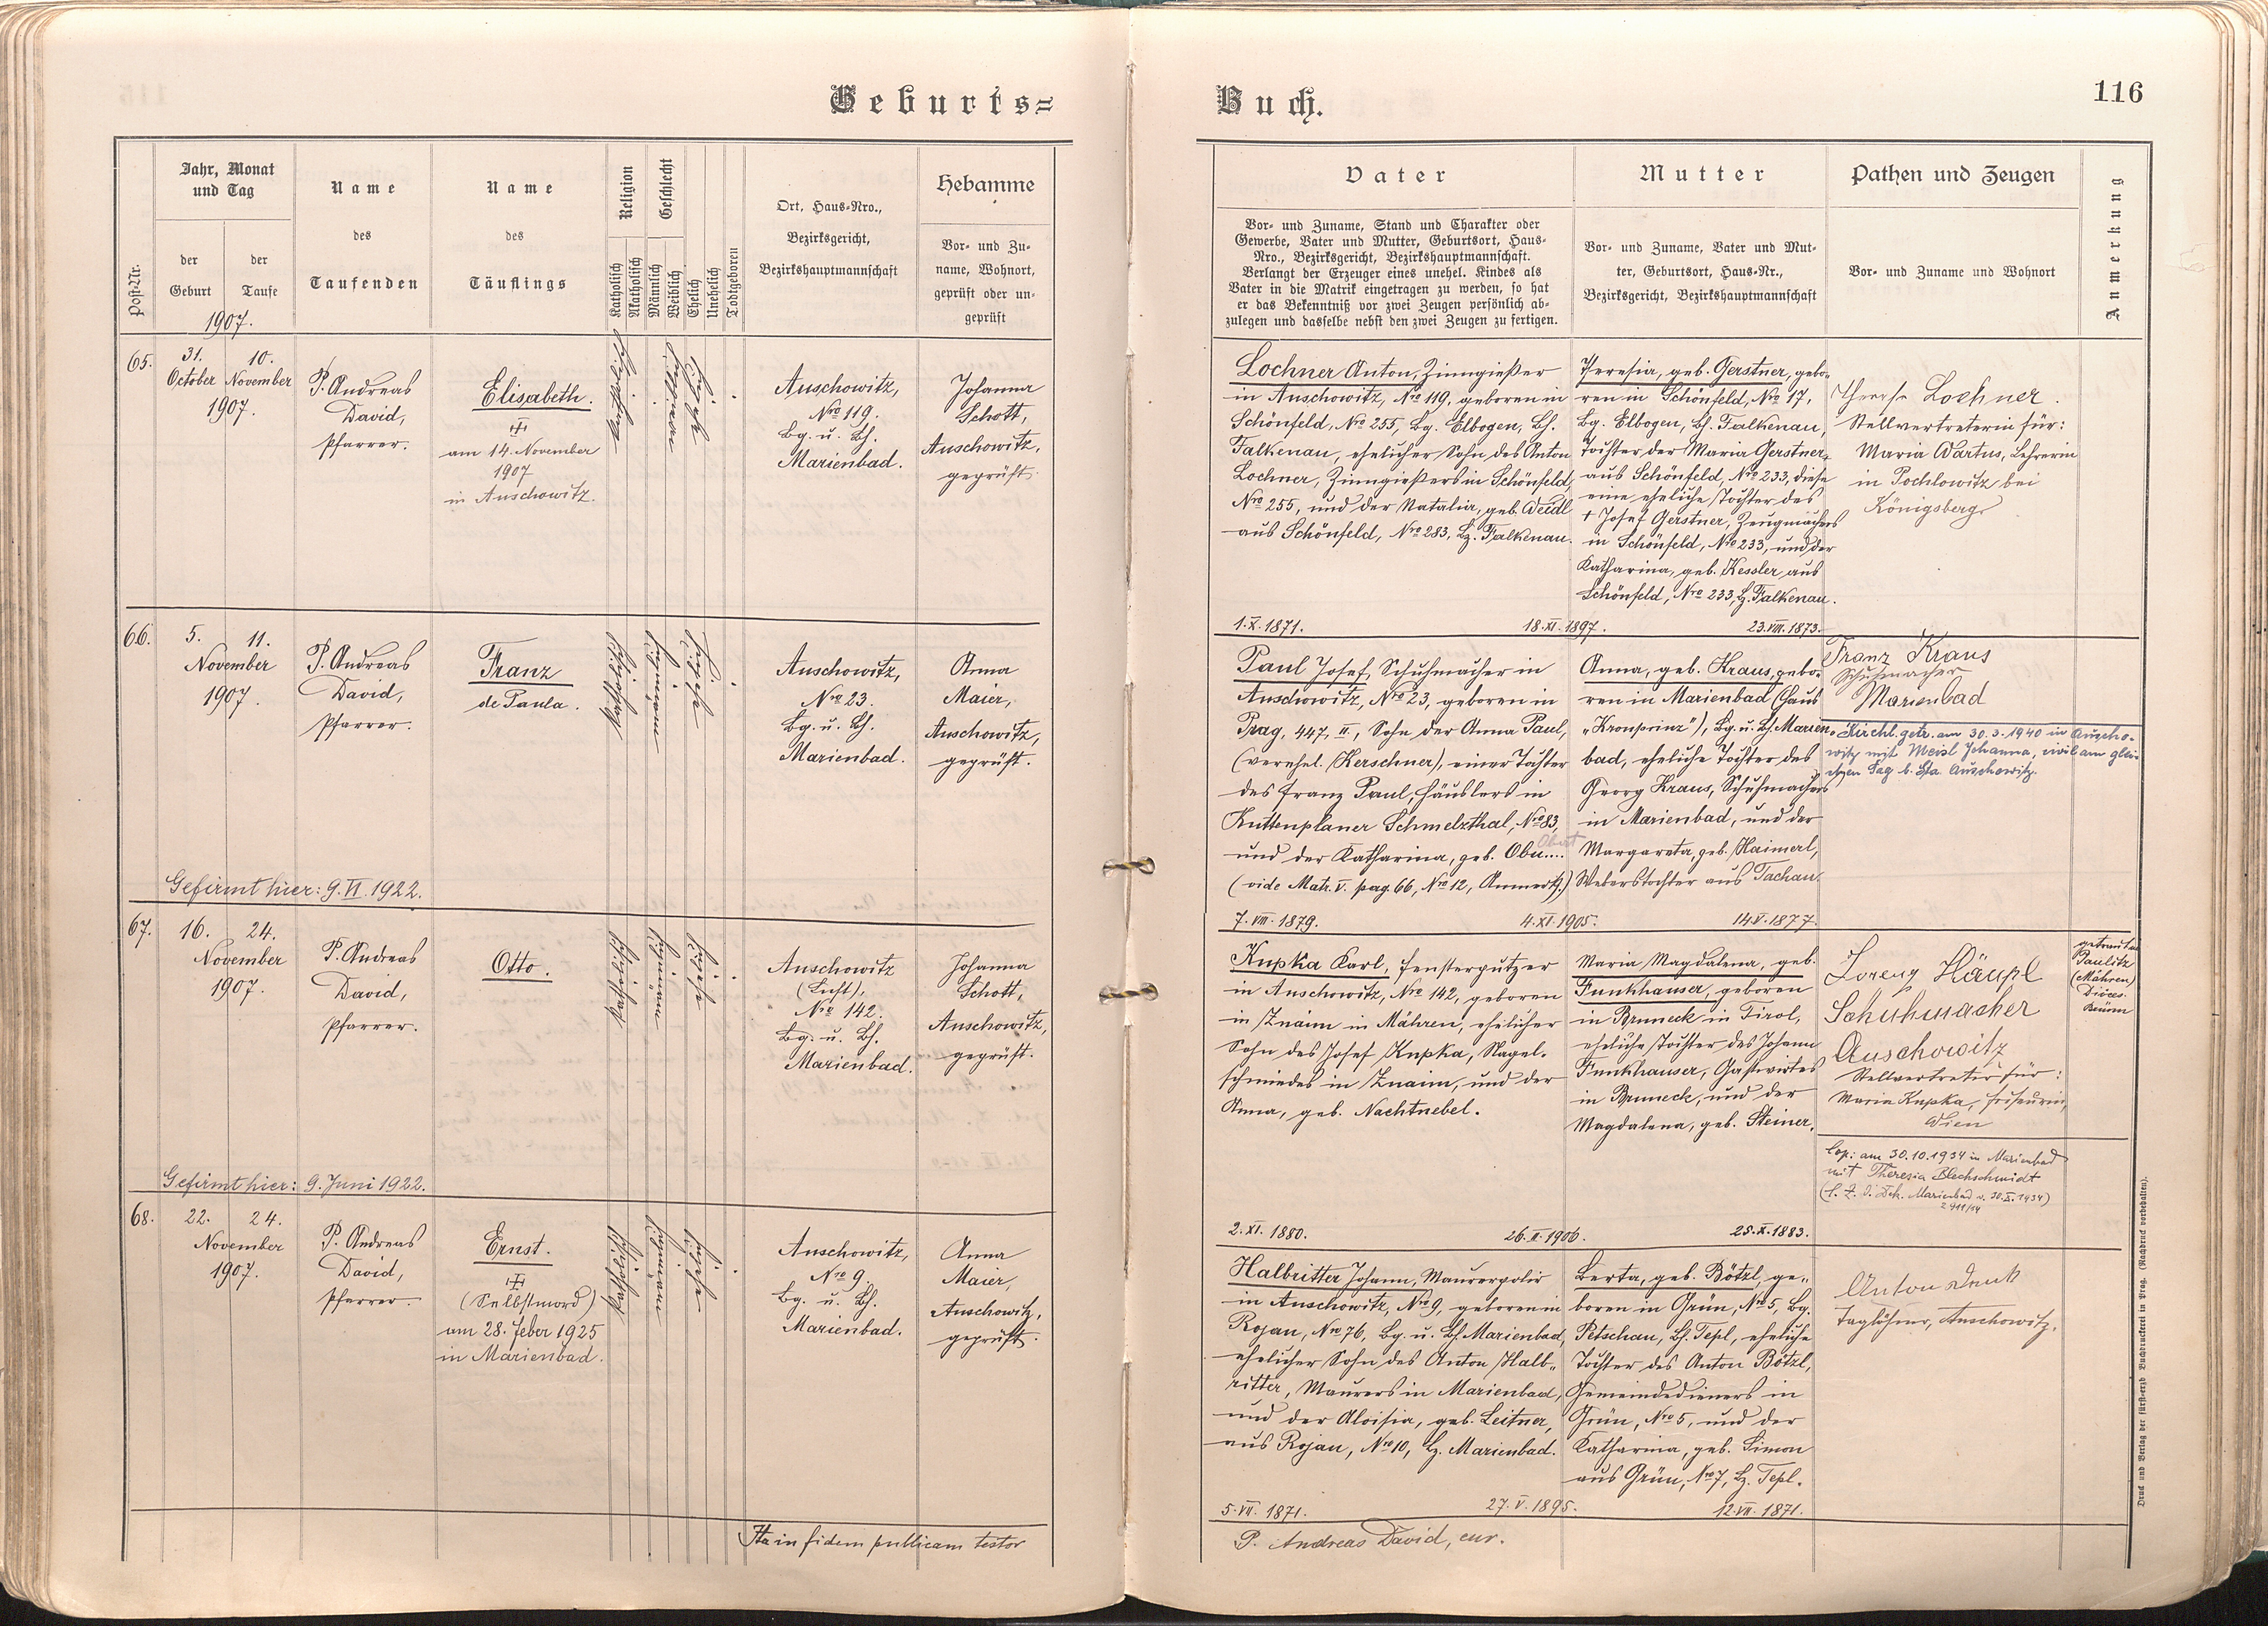 Geburts=
Buch.
116
Post-Nr.
Jahr, Monat
und Tag
der
Geburt
der
Taufe
1907.
Name
des
Taufenden
Name
des
Täuflings
Religion
Katholisch
Akatholisch
Geschlecht
Männlich
Weiblich
Ehelich
Unehelich
Todtgeboren
Ort, Haus-Nro.,
Bezirksgericht,
Bezirkshauptmannschaft
Hebamme
Vor- und Zu-
name, Wohnort,
geprüft oder un-
geprüft
Vater
Vor- und Zuname, Stand und Charakter oder
Gewerbe, Vater und Mutter, Geburtsort, Haus-
Nro., Bezirksgericht, Bezirkshauptmannschaft.
Verlangt der Erzeuger eines unehel. Kindes als
Vater in die Matrik eingetragen zu werden, so hat
er das Bekenntniß vor zwei Zeugen persönlich ab-
zulegen und dasselbe nebst den zwei Zeugen zu fertigen.
Mutter
Vor- und Zuname, Vater und Mut-
ter, Geburtsort, Haus-Nr.,
Bezirksgericht, Bezirkshauptmannschaft
Pathen und Zeugen
Vor- und Zuname und Wohnort
Anmerkung
65.
31.
October
10.
November
1907.
P. Andreas
David,
Pfarrer.
Elisabeth.
am 14. November
1907
in Auschowitz.
katholisch
ehelich
Auschowitz,
Nro 119.
Bg. u. Bh.
Marienbad.
Johanna
Schott,
Auschowitz,
geprüft.
Lochner Anton, Zinngießer
in Auschowitz, Nro 119, geboren in
Schönfeld, Nro 255, Bg. Elbogen, Bh.
Falkenau, ehelicher Sohn des Anton
Lochner, Zinngießers in Schönfeld,
Nro 255, und der Natalia, geb. Weidl
aus Schönfeld, Nro 283, Bz. Falkenau.
1.X.1871.
18.XI.1897.
Theresia, geb. Gerstner, gebo-
ren in Schönfeld, Nro 17,
Bg. Elbogen, Bh. Falkenau,
Tochter der Maria Gerstner,
aus Schönfeld, Nro 233, diese
eine eheliche Tochter des
+ Josef Gerstner, Zeugmachers
in Schönfeld, Nro 233, und der
Katharina, geb. Kessler aus
Schönfeld, Nro 233, Bz. Falkenau.
23.VIII.1873.
Lochner
Stellvertreterin für:
Maria Wartus, Lehrerin
in Pochlowitz bei
Königsberg
66.
5.
11.
November
1907.
P. Andreas
David,
Pfarrer.
Franz
de Paula.
katholisch
ehelich
Auschowitz,
Nro 23.
Bg. u. Bh.
Marienbad.
Anna
Maier,
Auschowitz,
geprüft.
Gefirmt hier: 9.VI.1922.
Paul Josef, Schuhmacher in
Auschowitz, Nro 23, geboren in
Prag, 447, II, Sohn der Anna Paul,
(verehel. Kerschner), einer Tochter
des Franz Paul, Häuslers in
Kuttenplaner Schmelzthal, Nro 83,
und der Katharina, geb. Obu....
(vide Matr. V. pag. 66, Nro 12, Anmerk.)
7.VIII.1879.
4.XI.1905.
Anna, geb. Kraus, gebo-
ren in Marienbad (Haus
„Kronprinz"), Bg. u. Bh. Marien-
bad, eheliche Tochter des
Georg Kraus, Schuhmachers
in Marienbad, und der
Margareta, geb. Haimerl,
Weberstochter aus Tachau.
14.V.1877.
Franz Kraus
Schuhmacher
Marienbad
Kirchl. getr. am 30.3.1940 in Auscho-
witz mit Meisl Johanna, civil am glei-
chen Tag b. Sta. Auschowitz.
67.
16.
24.
November
1907.
P. Andreas
David,
Pfarrer.
Otto.
katholisch
ehelich
Auschowitz
Nro 142.
Bg. u. Bh.
Marienbad.
Johanna
Schott,
Auschowitz,
geprüft.
Gefirmt hier: 9. Juni 1922.
Kupka Karl, Fensterputzer
in Auschowitz, Nro 142, geboren
in Znaim in Mähren, ehelicher
Sohn des Josef Kupka, Nagel-
schmiedes in Znaim, und der
Anna, geb. Nachtnebel.
2.XI.1880.
26.II.1906.
Maria Magdalena, geb.
Funkhauser, geboren
in Bruneck in Tirol,
eheliche Tochter des Johann
Funkhauser, Gastwirtes
in Bruneck, und der
Magdalena, geb. Steiner.
25.X.1883.
Lorenz Häupl
Schuhmacher
Auschowitz
Stellvertreter für:
Maria Kupka, Friseurin,
Wien
Cop: am 30.10.1934 in Marienbad
mit Theresia Blechschmidt
getraut in
Paulitz
(Mähren)
Diöces.
Brünn
68.
22.
24.
November
1907.
P. Andreas
David,
Pfarrer.
Ernst.
(Selbstmord)
am 28. Feber 1925
in Marienbad.
katholisch
ehelich
Auschowitz,
Nro 9.
Bg. u. Bh.
Marienbad.
Anna
Maier,
Auschowitz,
geprüft.
Halbritter Johann, Maurerpolir
in Auschowitz, Nro 9, geboren in
Rojau, Nro 76, Bg. u. Bh. Marienbad,
ehelicher Sohn des Anton Halb-
ritter, Maurers in Marienbad,
und der Aloisia, geb. Leitner,
aus Rojau, Nro 10, Bz. Marienbad.
5.VII.1871.
27.V.1895.
Berta, geb. Bötzl, ge-
boren in Grün, Nro 5, Bg.
Petschau, Bh. Tepl, eheliche
Tochter des Anton Bötzl,
Gemeindedieners in
Grün, Nro 5, und der
Katharina, geb. Simon
aus Grün, Nro 7, Bz. Tepl.
12.VII.1871.
Anton Denk
Taglöhner, Auschowitz.
Ita in fidem publicam testor
P. Andreas David, cur.
Druck und Verlag der fürst-erzb Buchdruckerei in Prag. (Nachdruck vorbehalten).